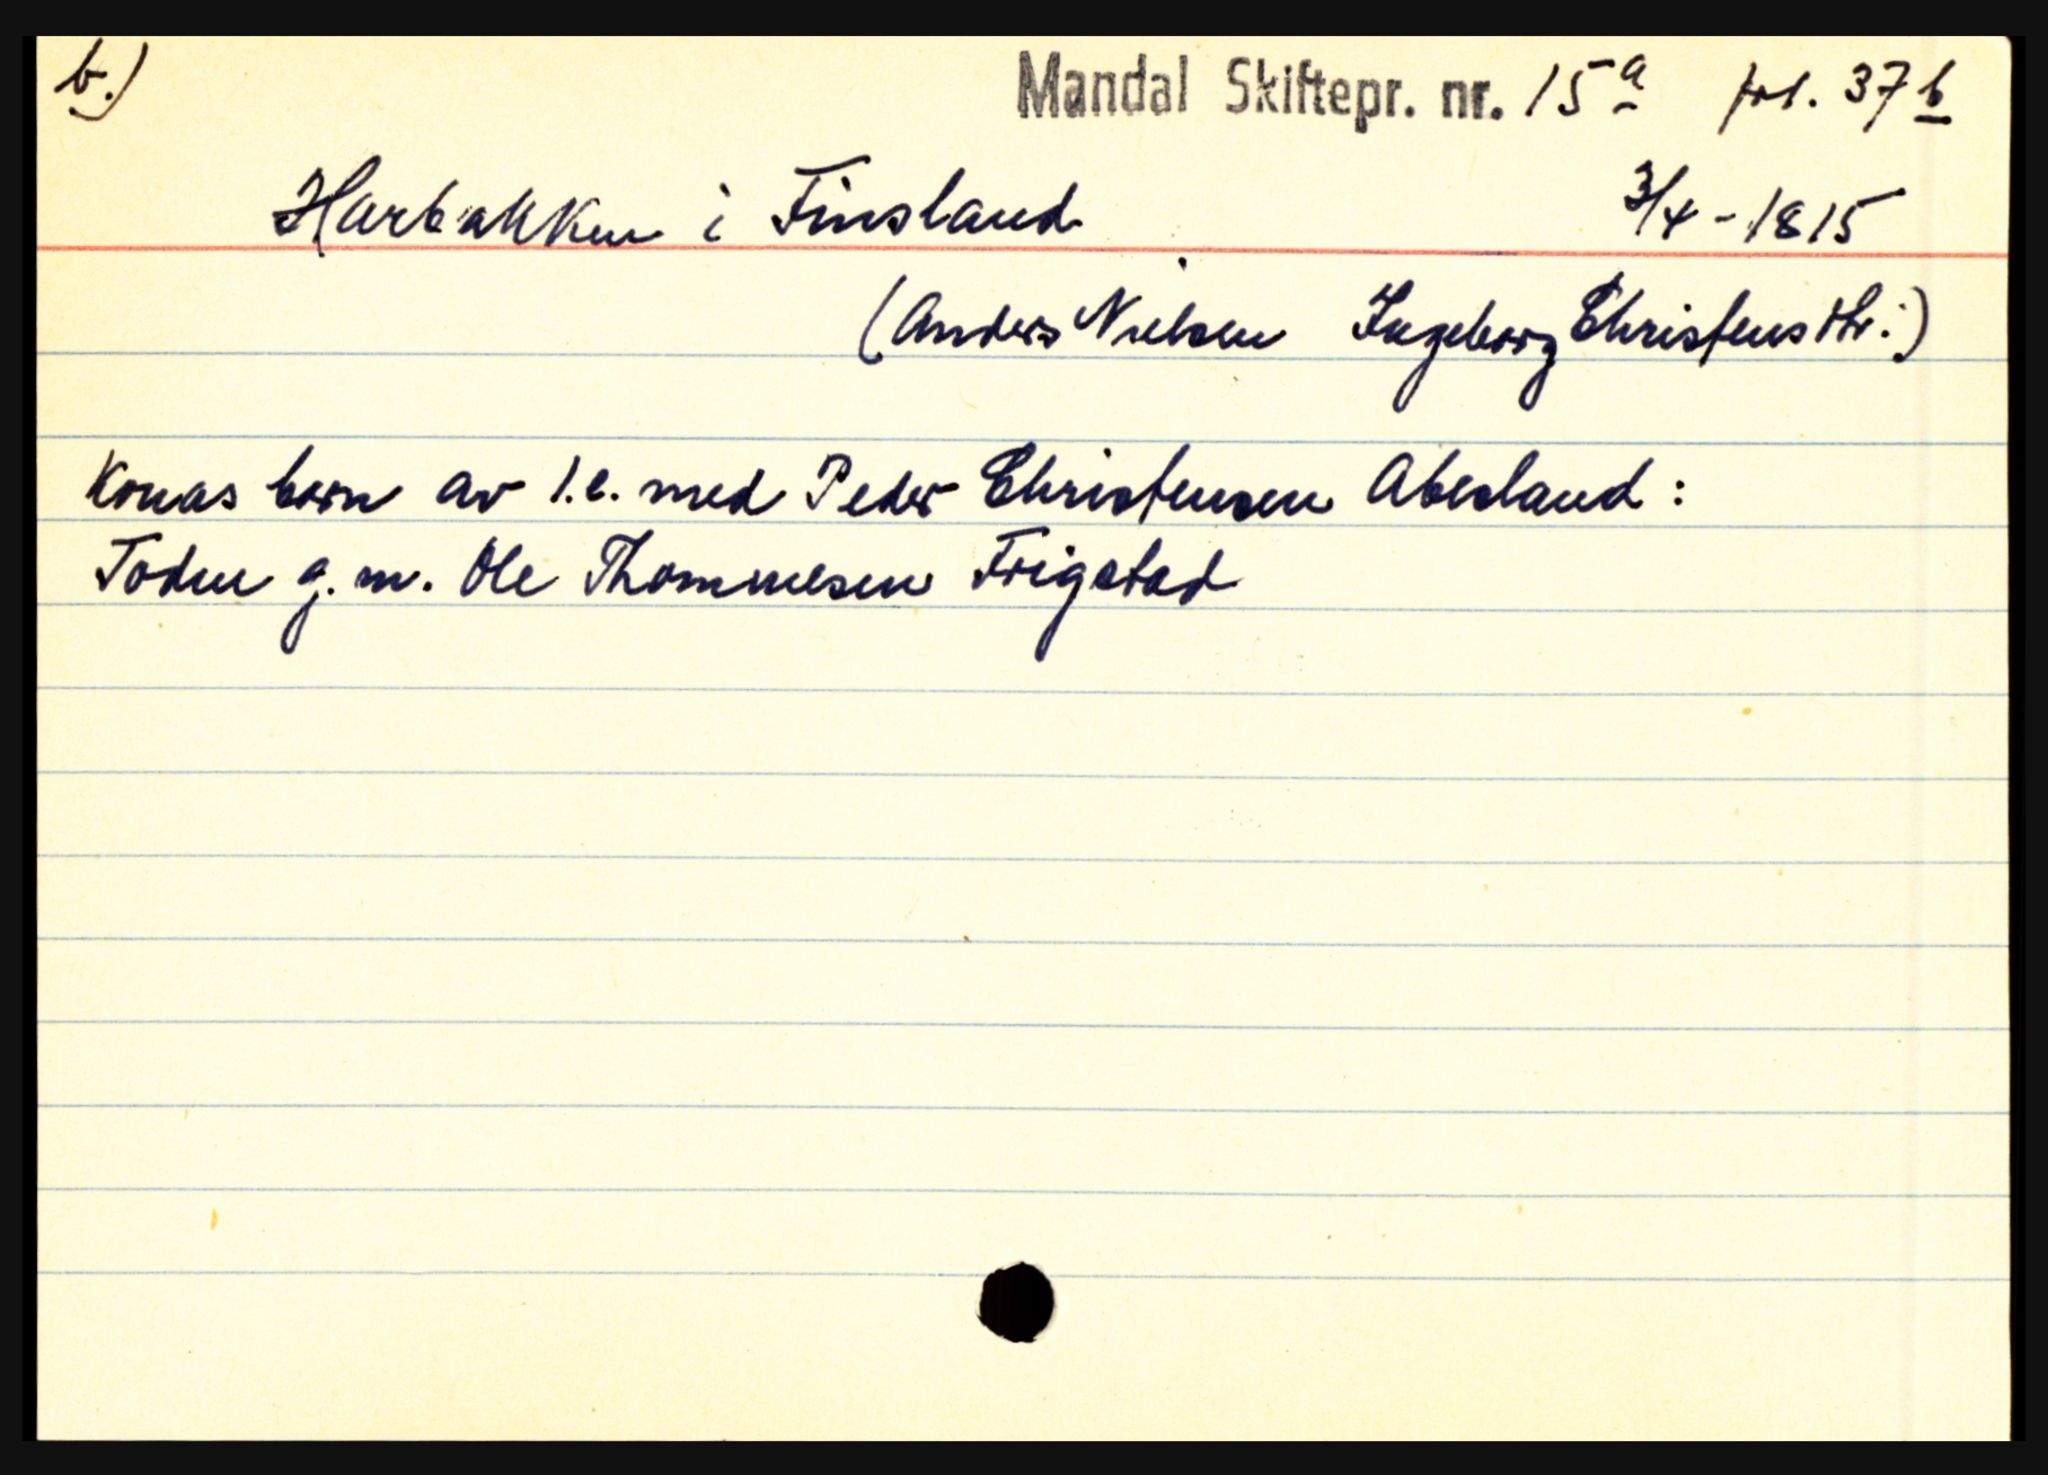 b.) Mandal Skiftepr. nr. 15a fol. 37b
Harbakken i Finsland 3/4-1815
(Anders Nielsen Ingeborg Christensdtr.)
Konas born av 1.e. med Peder Christensen Abesland:
Toden g.m. Ole Thommesen Frigstad